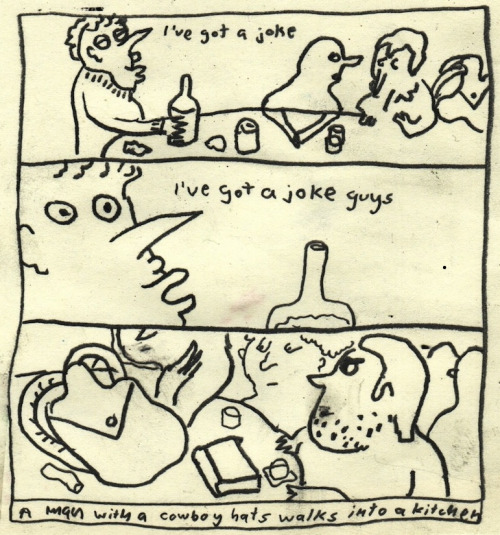 I've got a joke
I've got a joke guys
A man with a cowboy hats walks into a kitchen